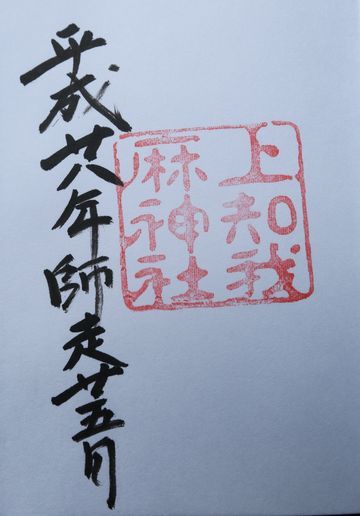 上知我
麻神社
平成廿八年師走廿五旬